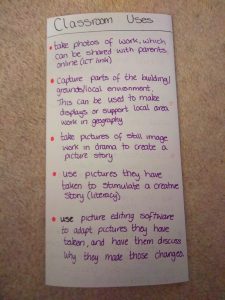 Classroom Uses
• take photos of work, which
can be shared with parents
online (ICT link)
• Capture parts of the building/
grounds/local environment.
This can be used to make
displays or support local area
work in geography.
• take pictures of still image
work in drama to create a
picture story
• use pictures they have
taken to stimulate a creative
story (literacy)
• use picture editing software
to adapt pictures they have
taken, and have them discuss
why they made those changes.